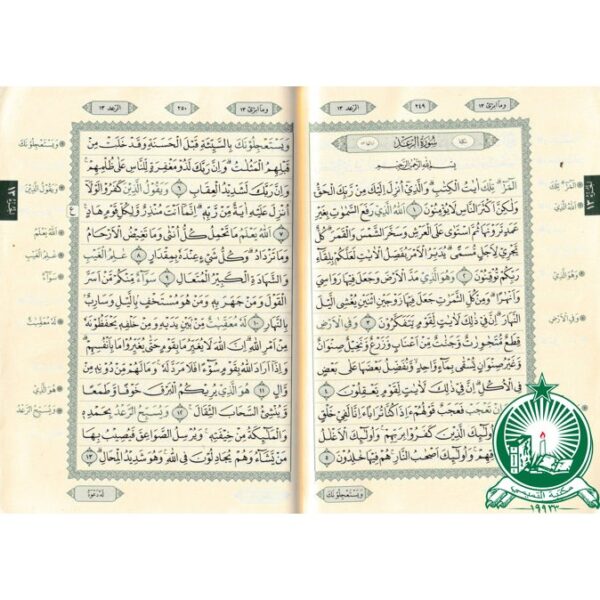 الرعد ١٣
٢٤٩
وما ابرئ ١٣
سُورَةُ الرَّعْدِ
بِسْمِ اللهِ الرَّحْمٰنِ الرَّحِيْمِ
الٓمّٓرٰ ۚ تِلْكَ اٰيٰتُ الْكِتٰبِ ۗ وَالَّذِيْٓ اُنْزِلَ اِلَيْكَ مِنْ رَّبِّكَ الْحَقُّ
وَلٰكِنَّ اَكْثَرَ النَّاسِ لَا يُؤْمِنُوْنَ ١ اَللّٰهُ الَّذِيْ رَفَعَ السَّمٰوٰتِ بِغَيْرِ
عَمَدٍ تَرَوْنَهَا ثُمَّ اسْتَوٰى عَلَى الْعَرْشِ وَسَخَّرَ الشَّمْسَ وَالْقَمَرَ ۗ كُلٌّ
يَّجْرِيْ لِاَجَلٍ مُّسَمًّى ۗ يُدَبِّرُ الْاَمْرَ يُفَصِّلُ الْاٰيٰتِ لَعَلَّكُمْ بِلِقَاۤءِ
رَبِّكُمْ تُوْقِنُوْنَ ٢ وَهُوَ الَّذِيْ مَدَّ الْاَرْضَ وَجَعَلَ فِيْهَا رَوَاسِيَ
وَاَنْهٰرًا ۗ وَمِنْ كُلِّ الثَّمَرٰتِ جَعَلَ فِيْهَا زَوْجَيْنِ اثْنَيْنِ يُغْشِى الَّيْلَ
النَّهَارَ ۗ اِنَّ فِيْ ذٰلِكَ لَاٰيٰتٍ لِّقَوْمٍ يَّتَفَكَّرُوْنَ ٣ وَفِى الْاَرْضِ
قِطَعٌ مُّتَجٰوِرٰتٌ وَّجَنّٰتٌ مِّنْ اَعْنَابٍ وَّزَرْعٌ وَّنَخِيْلٌ صِنْوَانٌ
وَّغَيْرُ صِنْوَانٍ يُّسْقٰى بِمَاۤءٍ وَّاحِدٍ ۙ وَّنُفَضِّلُ بَعْضَهَا عَلٰى بَعْضٍ
فِى الْاُكُلِ ۗ اِنَّ فِيْ ذٰلِكَ لَاٰيٰتٍ لِّقَوْمٍ يَّعْقِلُوْنَ ٤
وَاِنْ تَعْجَبْ فَعَجَبٌ قَوْلُهُمْ ءَاِذَا كُنَّا تُرٰبًا ءَاِنَّا لَفِيْ خَلْقٍ
اُولٰۤىِٕكَ الَّذِيْنَ كَفَرُوْا بِرَبِّهِمْ ۚ وَاُولٰۤىِٕكَ الْاَغْلٰلُ
وَاُولٰۤىِٕكَ اَصْحٰبُ النَّارِ ۚ هُمْ فِيْهَا خٰلِدُوْنَ ٥
وَيَسْتَعْجِلُوْنَكَ
وَهُوَ الَّذِيْ
وَفِى الْاَرْضِ
الرعد ١٣
٢٥٠
وما ابرئ ١٣
وَيَسْتَعْجِلُوْنَكَ بِالسَّيِّئَةِ قَبْلَ الْحَسَنَةِ وَقَدْ خَلَتْ مِنْ
قَبْلِهِمُ الْمَثُلٰتُ ۗ وَاِنَّ رَبَّكَ لَذُوْ مَغْفِرَةٍ لِّلنَّاسِ عَلٰى ظُلْمِهِمْ ۚ
وَاِنَّ رَبَّكَ لَشَدِيْدُ الْعِقَابِ ٦ وَيَقُوْلُ الَّذِيْنَ كَفَرُوْا لَوْلَآ
اُنْزِلَ عَلَيْهِ اٰيَةٌ مِّنْ رَّبِّهٖ ۗ اِنَّمَآ اَنْتَ مُنْذِرٌ وَّلِكُلِّ قَوْمٍ هَادٍ
٧ اَللّٰهُ يَعْلَمُ مَا تَحْمِلُ كُلُّ اُنْثٰى وَمَا تَغِيْضُ الْاَرْحَامُ
وَمَا تَزْدَادُ ۗ وَكُلُّ شَيْءٍ عِنْدَهٗ بِمِقْدَارٍ ٨ عٰلِمُ الْغَيْبِ
وَالشَّهَادَةِ الْكَبِيْرُ الْمُتَعَالِ ٩ سَوَاۤءٌ مِّنْكُمْ مَّنْ اَسَرَّ
الْقَوْلَ وَمَنْ جَهَرَ بِهٖ وَمَنْ هُوَ مُسْتَخْفٍ بِالَّيْلِ وَسَارِبٌ
بِالنَّهَارِ ١٠ لَهٗ مُعَقِّبٰتٌ مِّنْ بَيْنِ يَدَيْهِ وَمِنْ خَلْفِهٖ يَحْفَظُوْنَهٗ
مِنْ اَمْرِ اللّٰهِ ۗ اِنَّ اللّٰهَ لَا يُغَيِّرُ مَا بِقَوْمٍ حَتّٰى يُغَيِّرُوْا مَا بِاَنْفُسِهِمْ ۗ
وَاِذَآ اَرَادَ اللّٰهُ بِقَوْمٍ سُوْۤءًا فَلَا مَرَدَّ لَهٗ ۚ وَمَا لَهُمْ مِّنْ دُوْنِهٖ مِنْ
وَّالٍ ١١ هُوَ الَّذِيْ يُرِيْكُمُ الْبَرْقَ خَوْفًا وَّطَمَعًا
وَّيُنْشِئُ السَّحَابَ الثِّقَالَ ۚ ١٢ وَيُسَبِّحُ الرَّعْدُ بِحَمْدِهٖ
وَالْمَلٰۤىِٕكَةُ مِنْ خِيْفَتِهٖ ۚ وَيُرْسِلُ الصَّوَاعِقَ فَيُصِيْبُ بِهَا
مَنْ يَّشَاۤءُ وَهُمْ يُجَادِلُوْنَ فِى اللّٰهِ ۚ وَهُوَ شَدِيْدُ الْمِحَالِ ۗ ١٣
لَهٗ دَعْوَةُ
وَيَسْتَعْجِلُوْنَكَ
وَيَقُوْلُ الَّذِيْنَ
اَللّٰهُ يَعْلَمُ
عٰلِمُ الْغَيْبِ
سَوَاۤءٌ
لَهٗ مُعَقِّبٰتٌ
هُوَ الَّذِيْ
وَيُسَبِّحُ الرَّعْدُ